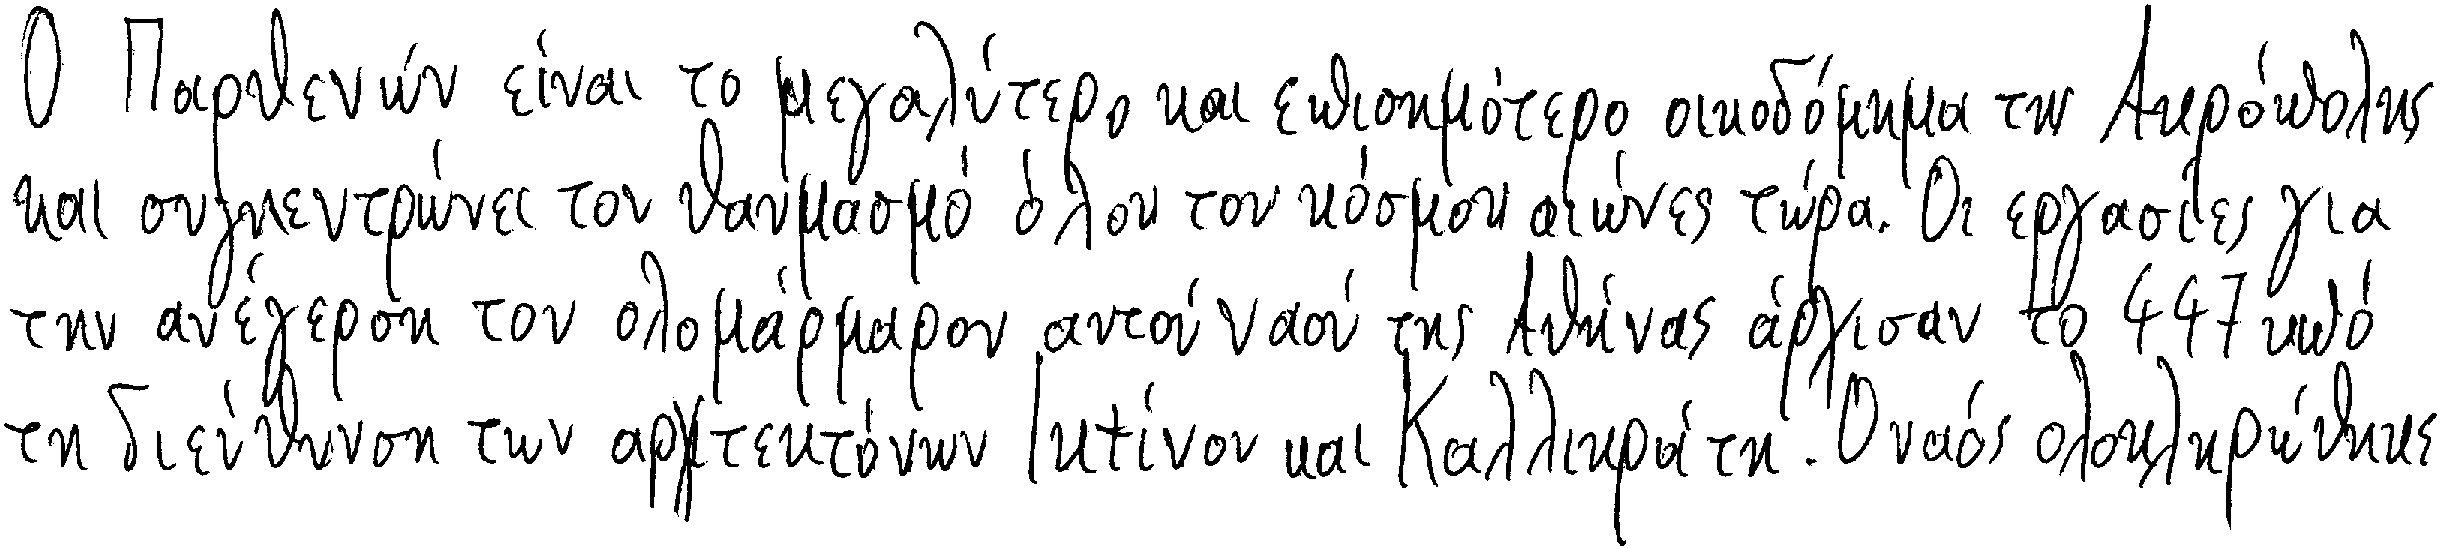 Ο Παρθενών είναι το μεγαλύτερο και επισημότερο οικοδόμημα της Ακρόπολης
και συγκεντρώνει τον θαυμασμό όλου του κόσμου αιώνες τώρα. Οι εργασίες για
την ανέγερση του ολομάρμαρου αυτού ναού της Αθήνας άρχισαν το 447 υπό
τη διεύθυνση των αρχιτεκτόνων Ικτίνου και Καλλικράτη. Ο ναός ολοκληρώθηκε